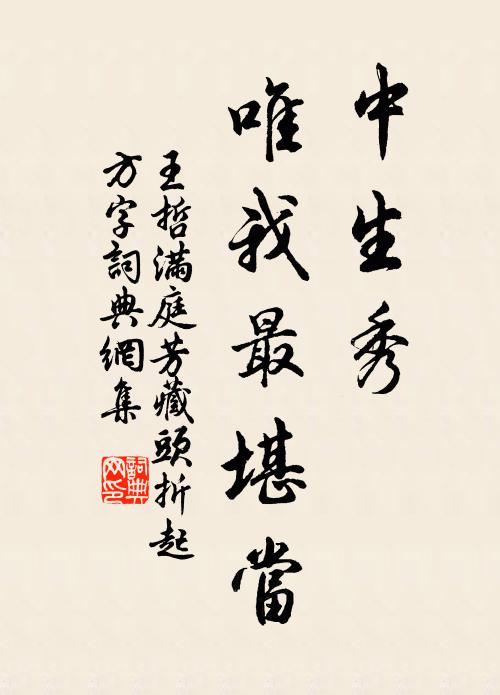 中生秀
唯我最堪當
王哲滿庭芳藏頭折起
方字詞典網集
詞典
网印